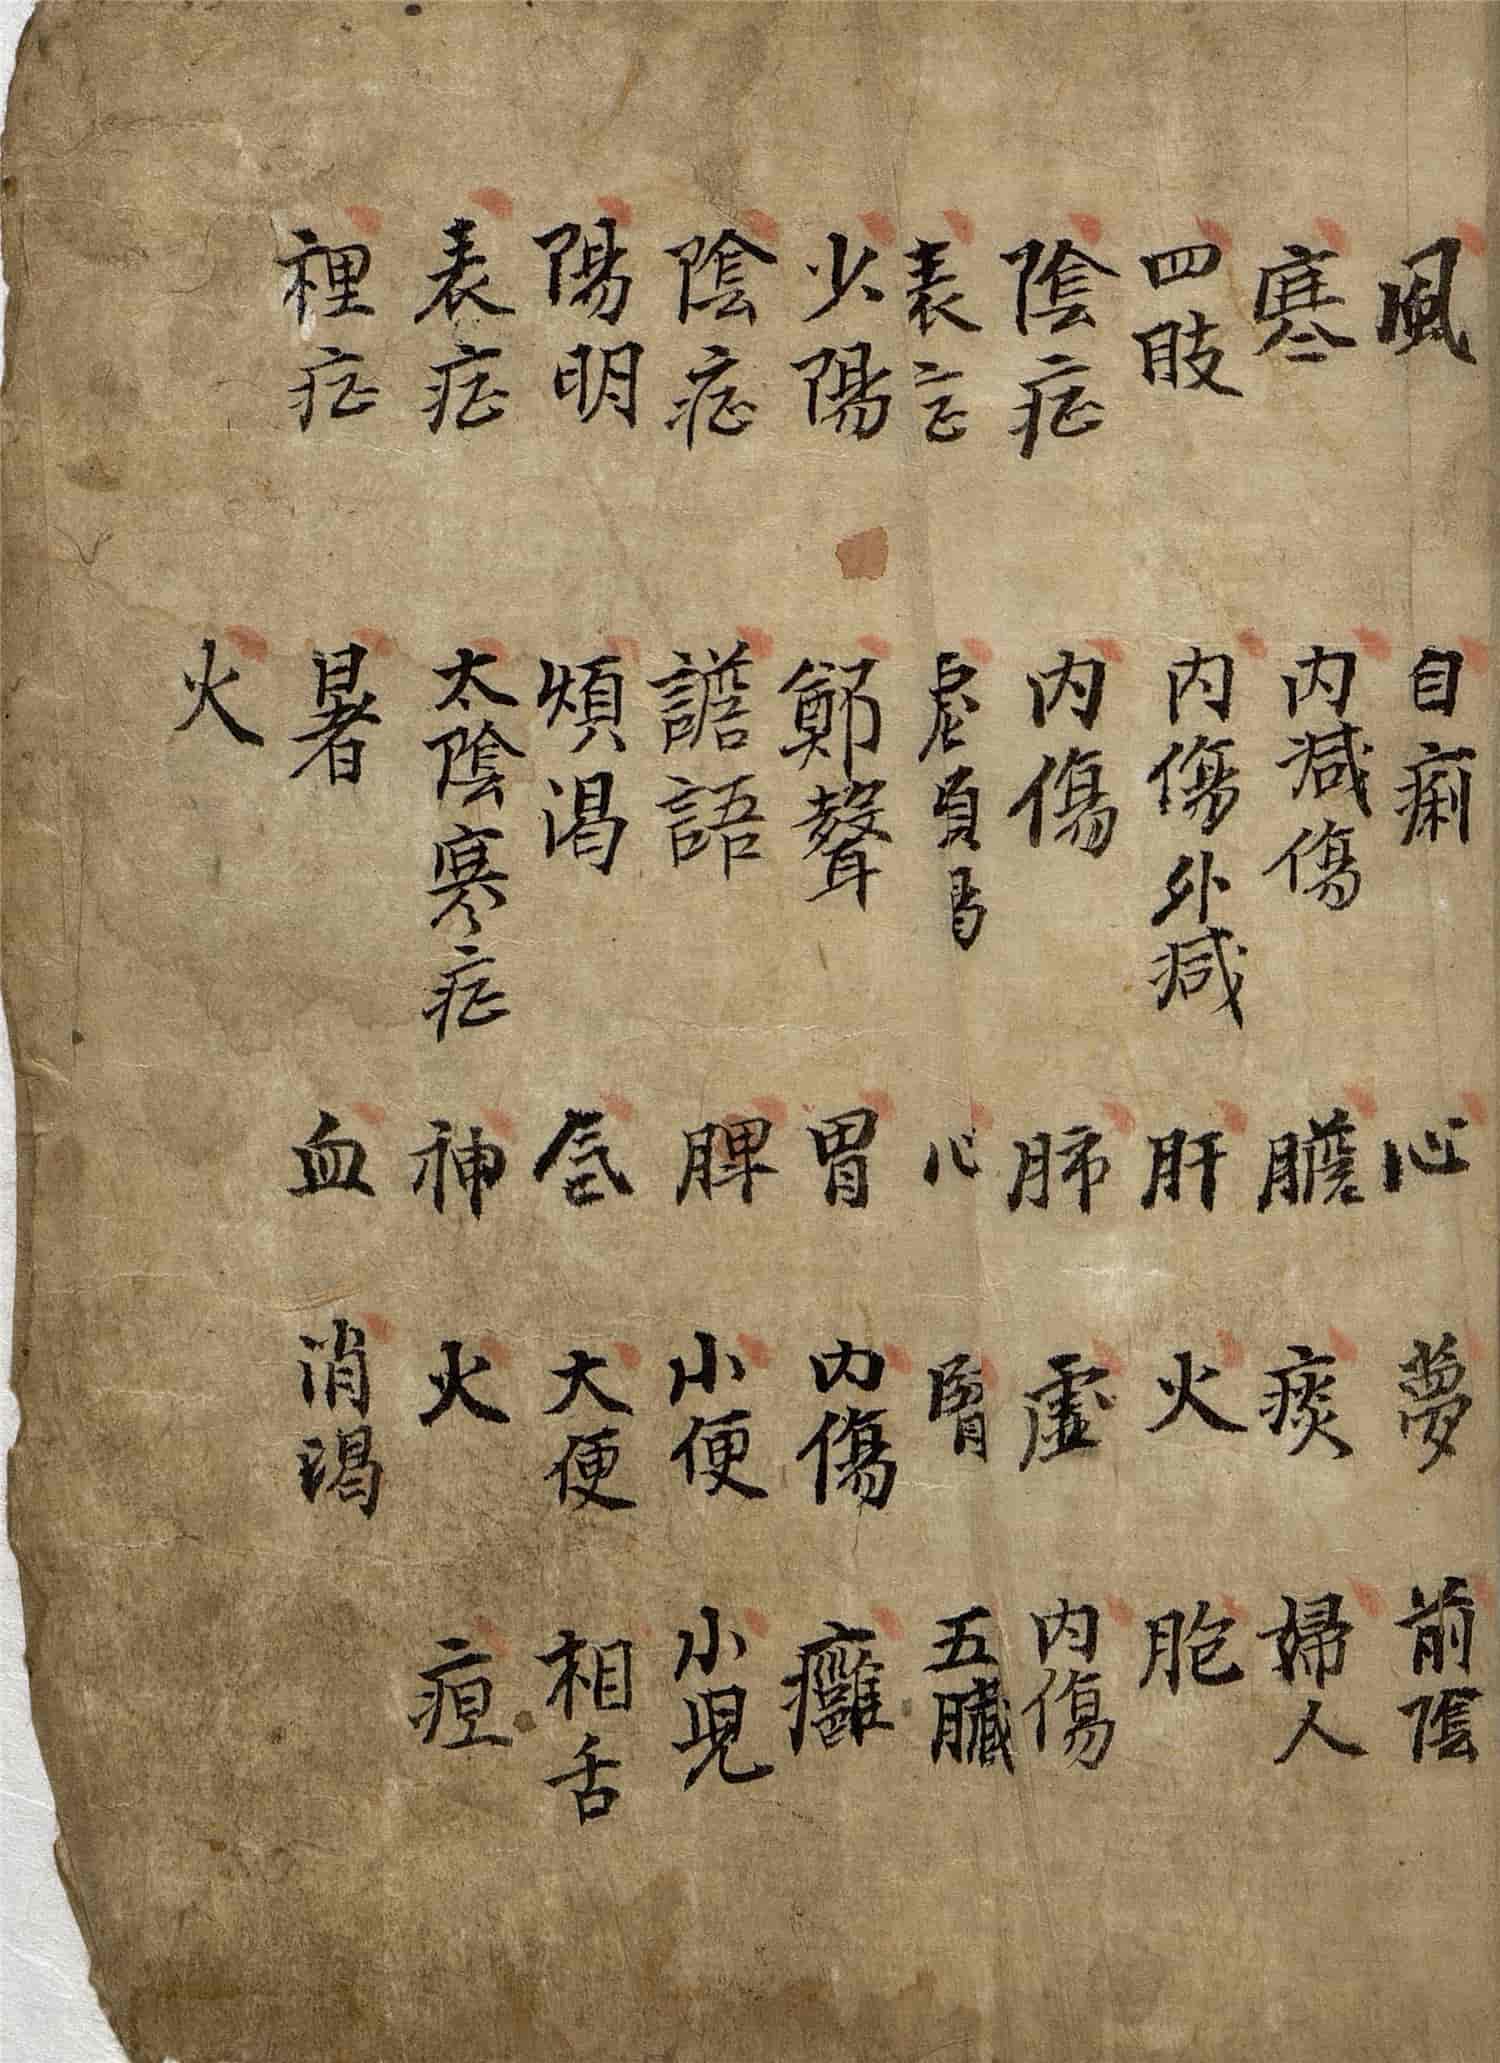 風 自痢 心 夢 前陰
寒 内减傷 膽 痰 婦人
四肢 内傷外减 肝 火 胞
陰症 内傷 肺 虛 内傷
表症 虛煩 心 腎 五臟
少陽 鄭聲 胃 内傷 癰
陰症 譫語 脾 小便 小兒
陽明 煩渴 氣 大便 相舌
表症 太陰寒症 神 火 疸
裡症 暑 血 消渴
火